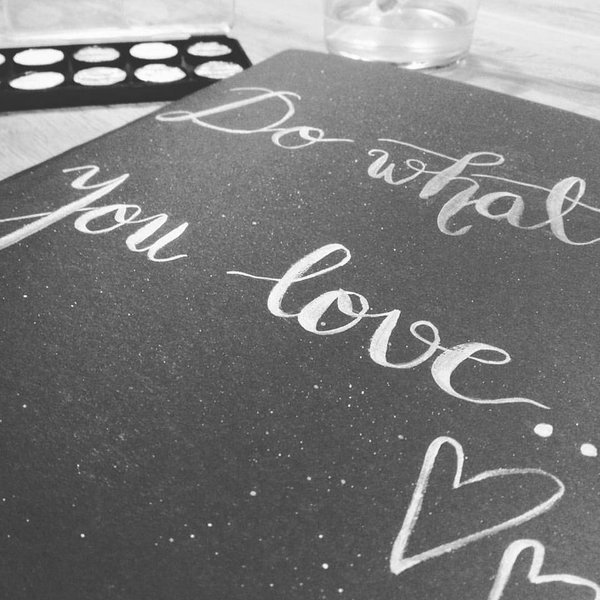 Do what
you love..